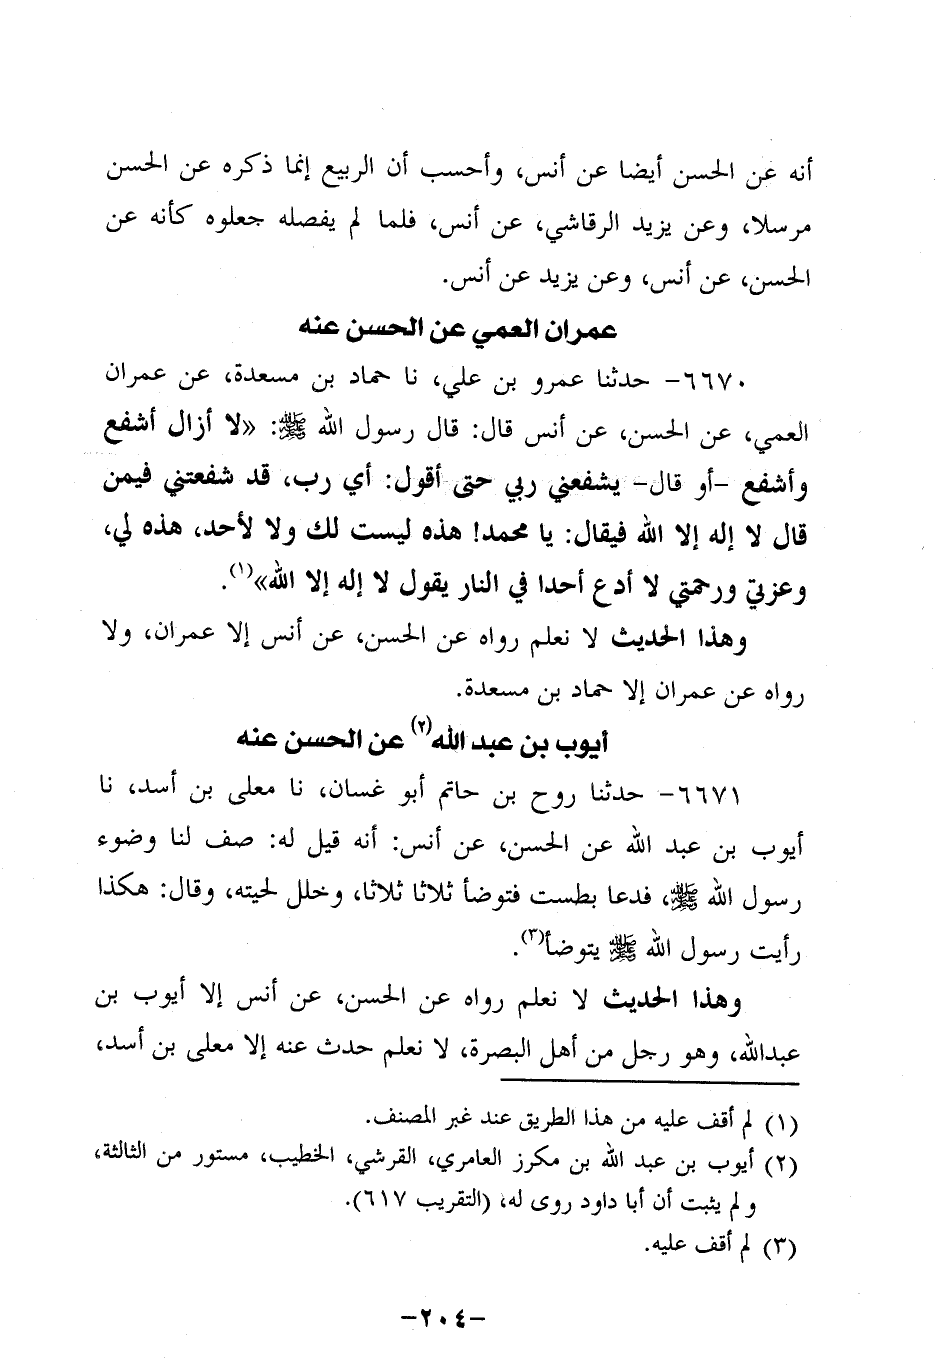 أنه عن الحسن أيضا عن أنس، وأحسب أن الربيع إنما ذكره عن الحسن
مرسلا، وعن يزيد الرقاشي، عن أنس، فلما لم يفصله جعلوه كأنه عن
الحسن، عن أنس، وعن يزيد عن أنس.
عمران العمي عن الحسن عنه
٦٦٧٠- حدثنا عمرو بن علي، نا حماد بن مسعدة، عن عمران
العمي، عن الحسن، عن أنس قال: قال رسول الله ﷺ: «لا أزال أشفع
وأشفع -أو قال- يشفعني ربي حتى أقول: أي رب، قد شفعتني فيمن
قال لا إله إلا الله فيقال: يا محمد! هذه ليست لك ولا لأحد، هذه لي،
وعزتي ورحمتي لا أدع أحدا في النار يقول لا إله إلا الله»(١).
وهذا الحديث لا نعلم رواه عن الحسن، عن أنس إلا عمران، ولا
رواه عن عمران إلا حماد بن مسعدة.
أيوب بن عبد الله(٢) عن الحسن عنه
٦٦٧١- حدثنا روح بن حاتم أبو غسان، نا معلى بن أسد، نا
أيوب بن عبد الله عن الحسن، عن أنس: أنه قيل له: صف لنا وضوء
رسول الله ﷺ، فدعا بطست فتوضأ ثلاثا ثلاثا، وخلل لحيته، وقال: هكذا
رأيت رسول الله ﷺ يتوضأ(٣).
وهذا الحديث لا نعلم رواه عن الحسن، عن أنس إلا أيوب بن
عبدالله، وهو رجل من أهل البصرة، لا نعلم حدث عنه إلا معلى بن أسد،
(١) لم أقف عليه من هذا الطريق عند غير المصنف.
(٢) أيوب بن عبد الله بن مكرز العامري، القرشي، الخطيب، مستور من الثالثة،
و لم يثبت أن أبا داود روى له، (التقريب ٦١٧).
(٣) لم أقف عليه.
-٢٠٤-